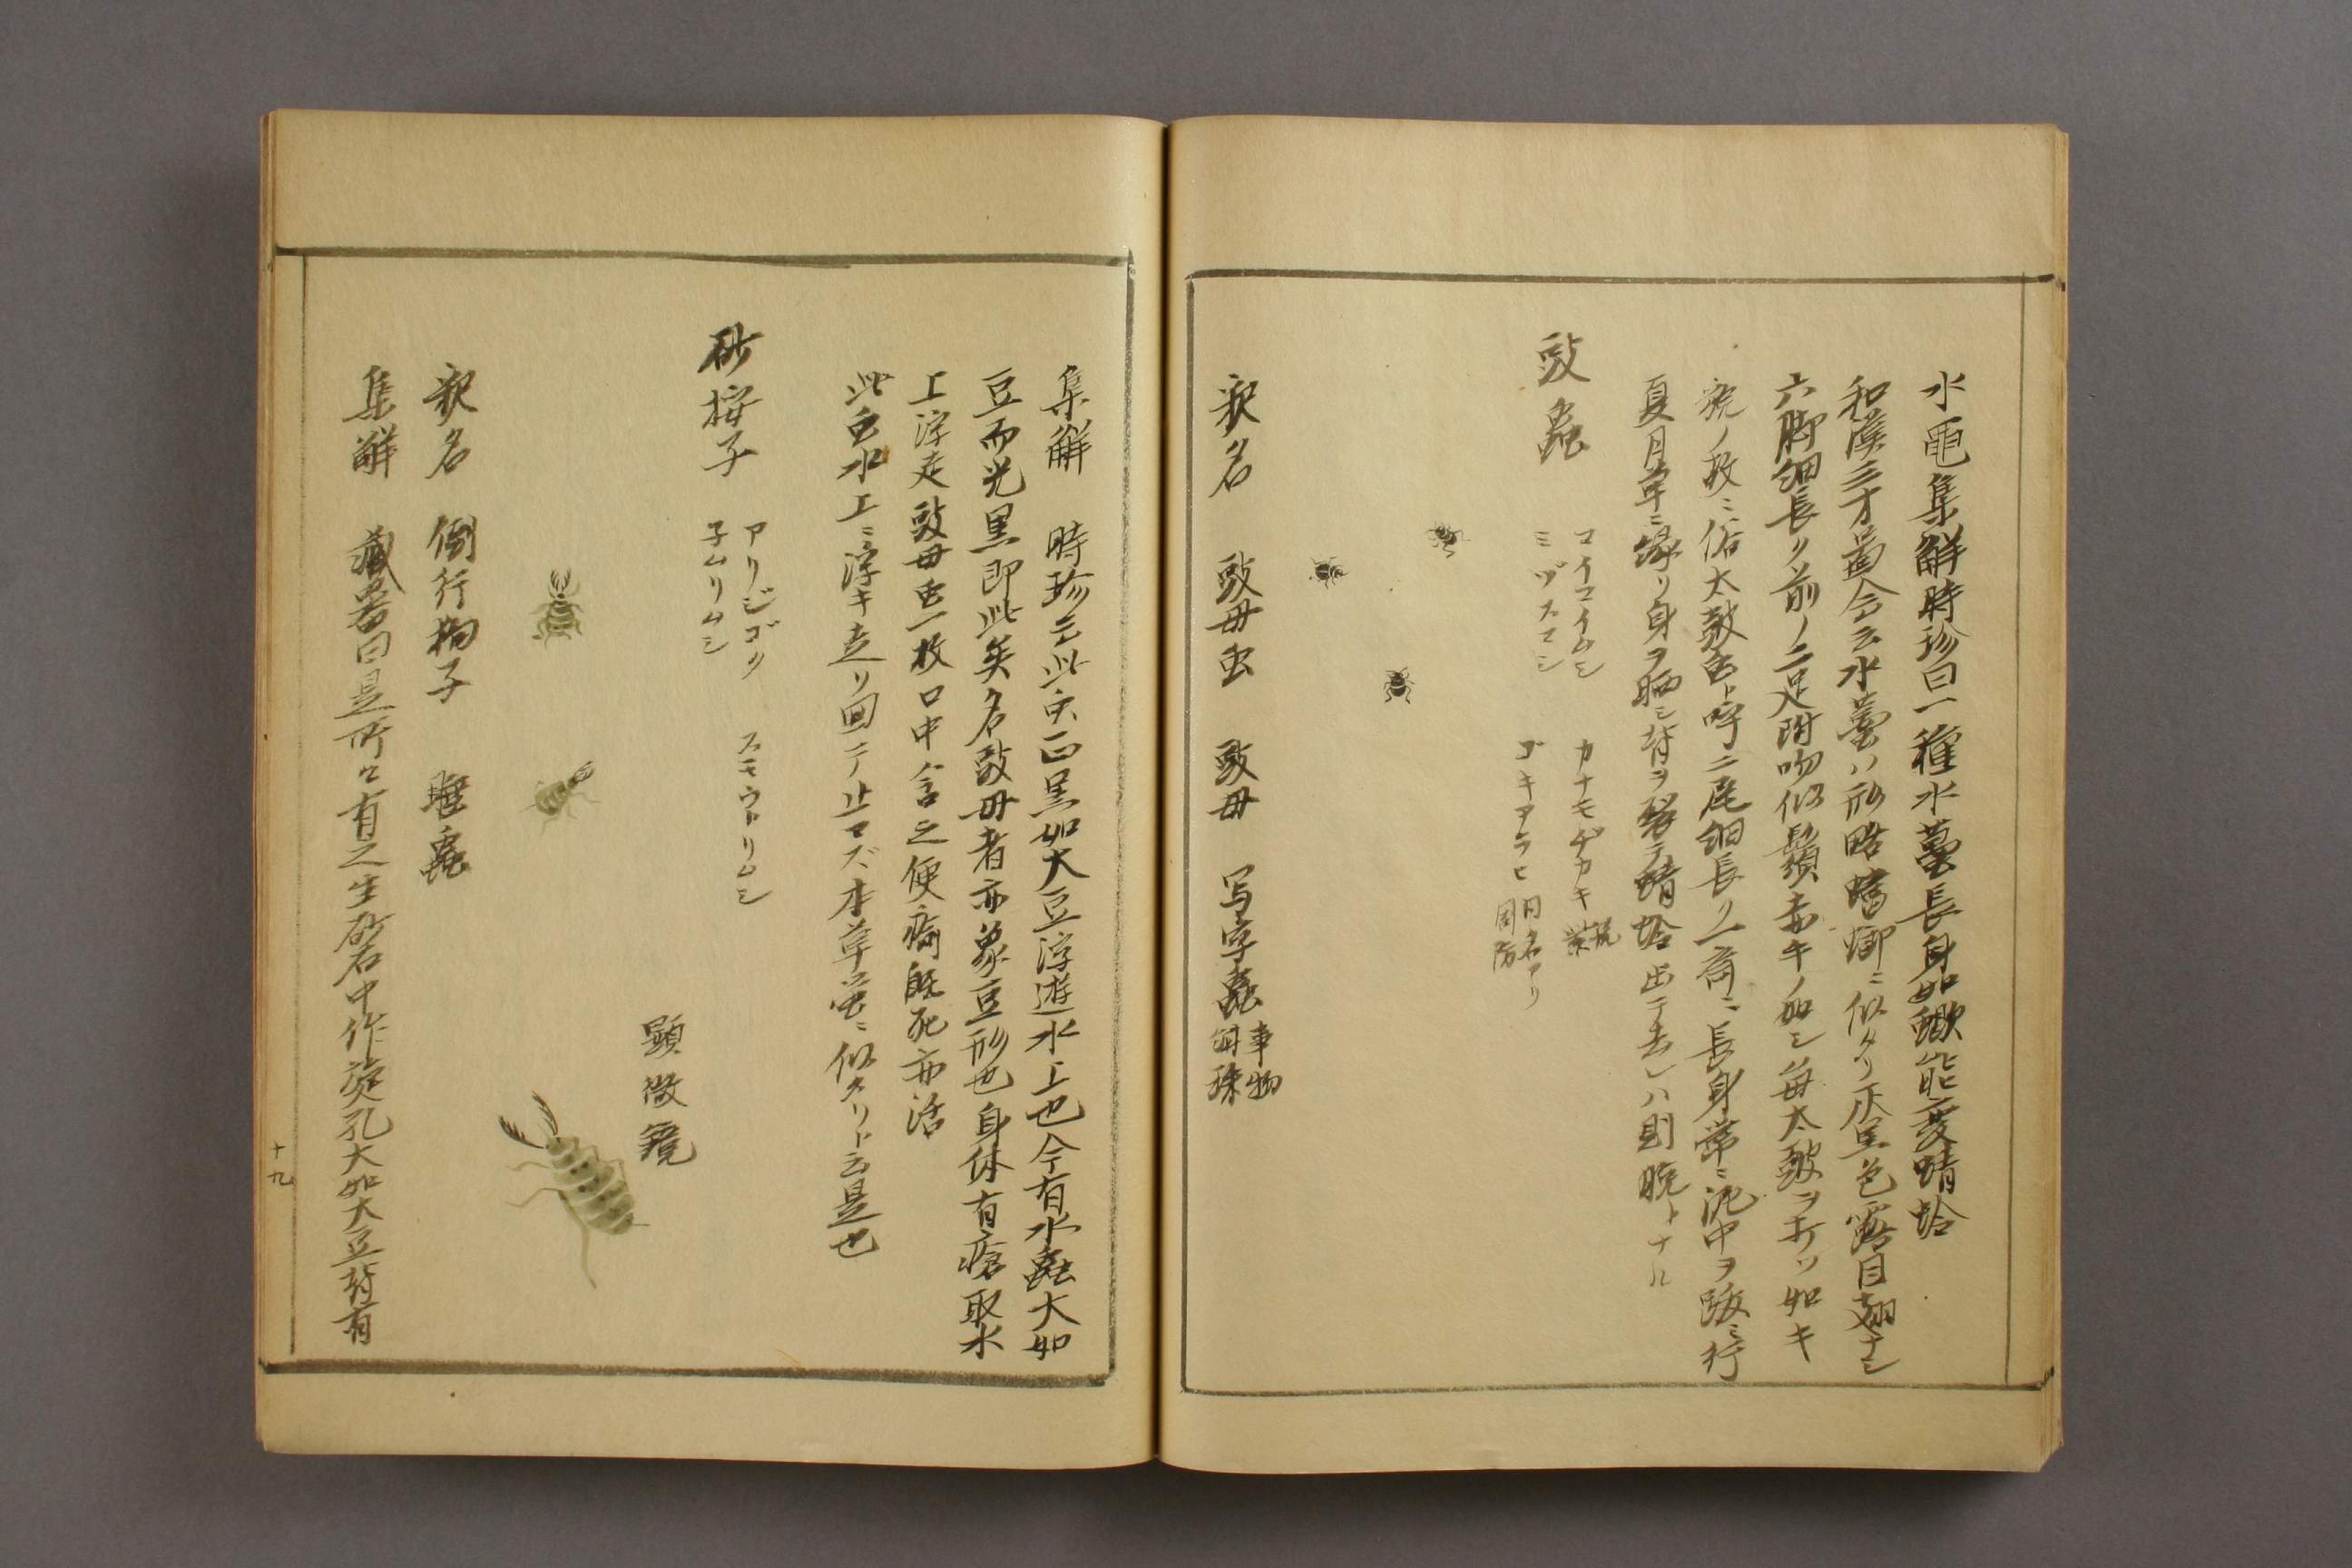 水黽集解時珍曰一種水蠆長身如蠍能変蜻蛉
和漢三才圖会云水蠆ハ形略蟷螂ニ似タリ灰黒色露目翅ナシ
六脚細長ク前ノ二足附吻似鬚赤キノ如シ毎太皷ヲ打ツ如キ
貌ノ故ニ俗太皷虫ト呼ニ尾細長ク二箇ニ長身常ニ泥中ヲ跋ニ行
夏月草ニ縁リ身ヲ晒シ背ヲ裂テ蜻蛉出テ去レハ則脱トナル
豉蟲
マイマイムシ カナモヂカキ
ミヅスマシ ゴキアラヒ
同名アリ
周防
釈名 豉母虫 豉母 写字蟲 事物
紺珠
集解 時珍云此虫正黒如大豆浮遊水上也今有水蟲大如
豆而光黒即此矣名豉母者亦象豆形也身体有瘡取水
上浮走豉母虫一枚口中含之便瘥既死亦活
此虫水上ニ浮キ走リ回テ止マズ本草蛍ニ似タリト云是也
砂挼子
アリジゴク スモウトリムシ
子ムリムシ
顕微鏡
釈名 倒行狗子 睡蟲
集解 蔵器曰是所々有之生砂石中作旋孔大如大豆背有
十九